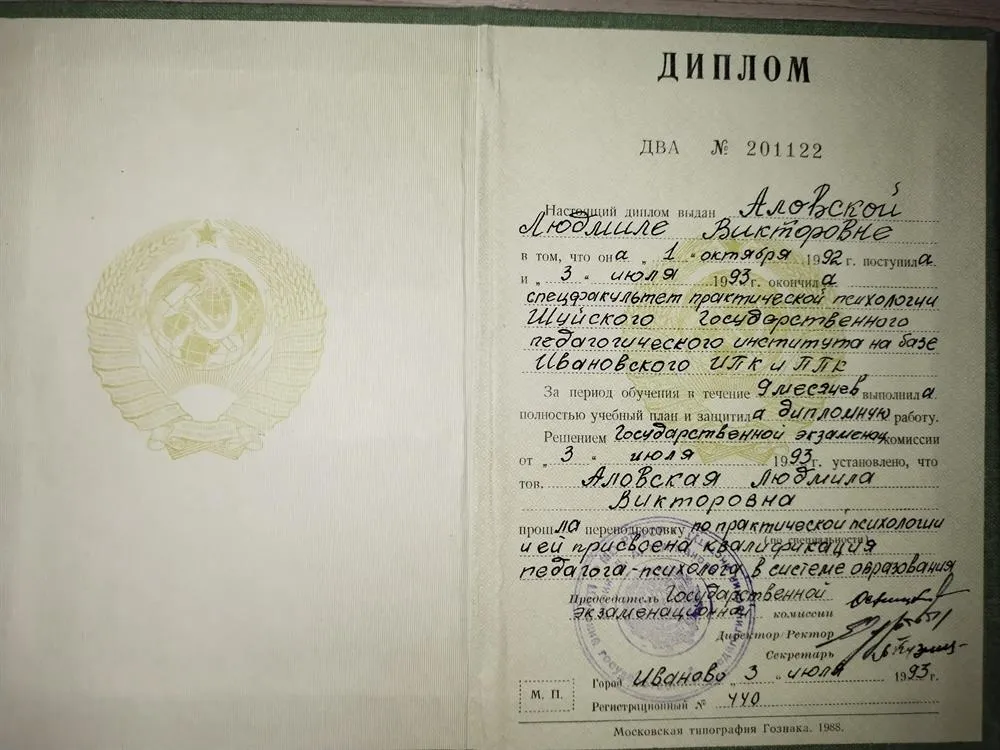 ДИПЛОМ
ДВА № 201122
Настоящий диплом выдан Аловской
Людмиле Викторовне
в том, что она „ 1 “ октября 1992 г. поступила
и „ 3 “ июля 1993 г. окончила
спецфакультет практической психологии
Шуйского Государственного
педагогического института на базе
Ивановского ИПК и ППК
За период обучения в течение 9 месяцев выполнила
полностью учебный план и защитила дипломную работу.
Решением Государственной экзаменац. комиссии
от „ 3 “ июля 1993 г. установлено, что
тов. Аловская Людмила
Викторовна
прошла переподготовку по практической психологии
(по специальности)
и ей присвоена квалификация
педагога-психолога в системе образования
Председатель Государственной
экзаменационной комиссии
Директор/Ректор
Секретарь
Город Иваново „ 3 “ июля 1993 г.
М. П.
Регистрационный № 440
Московская типография Гознака. 1988.